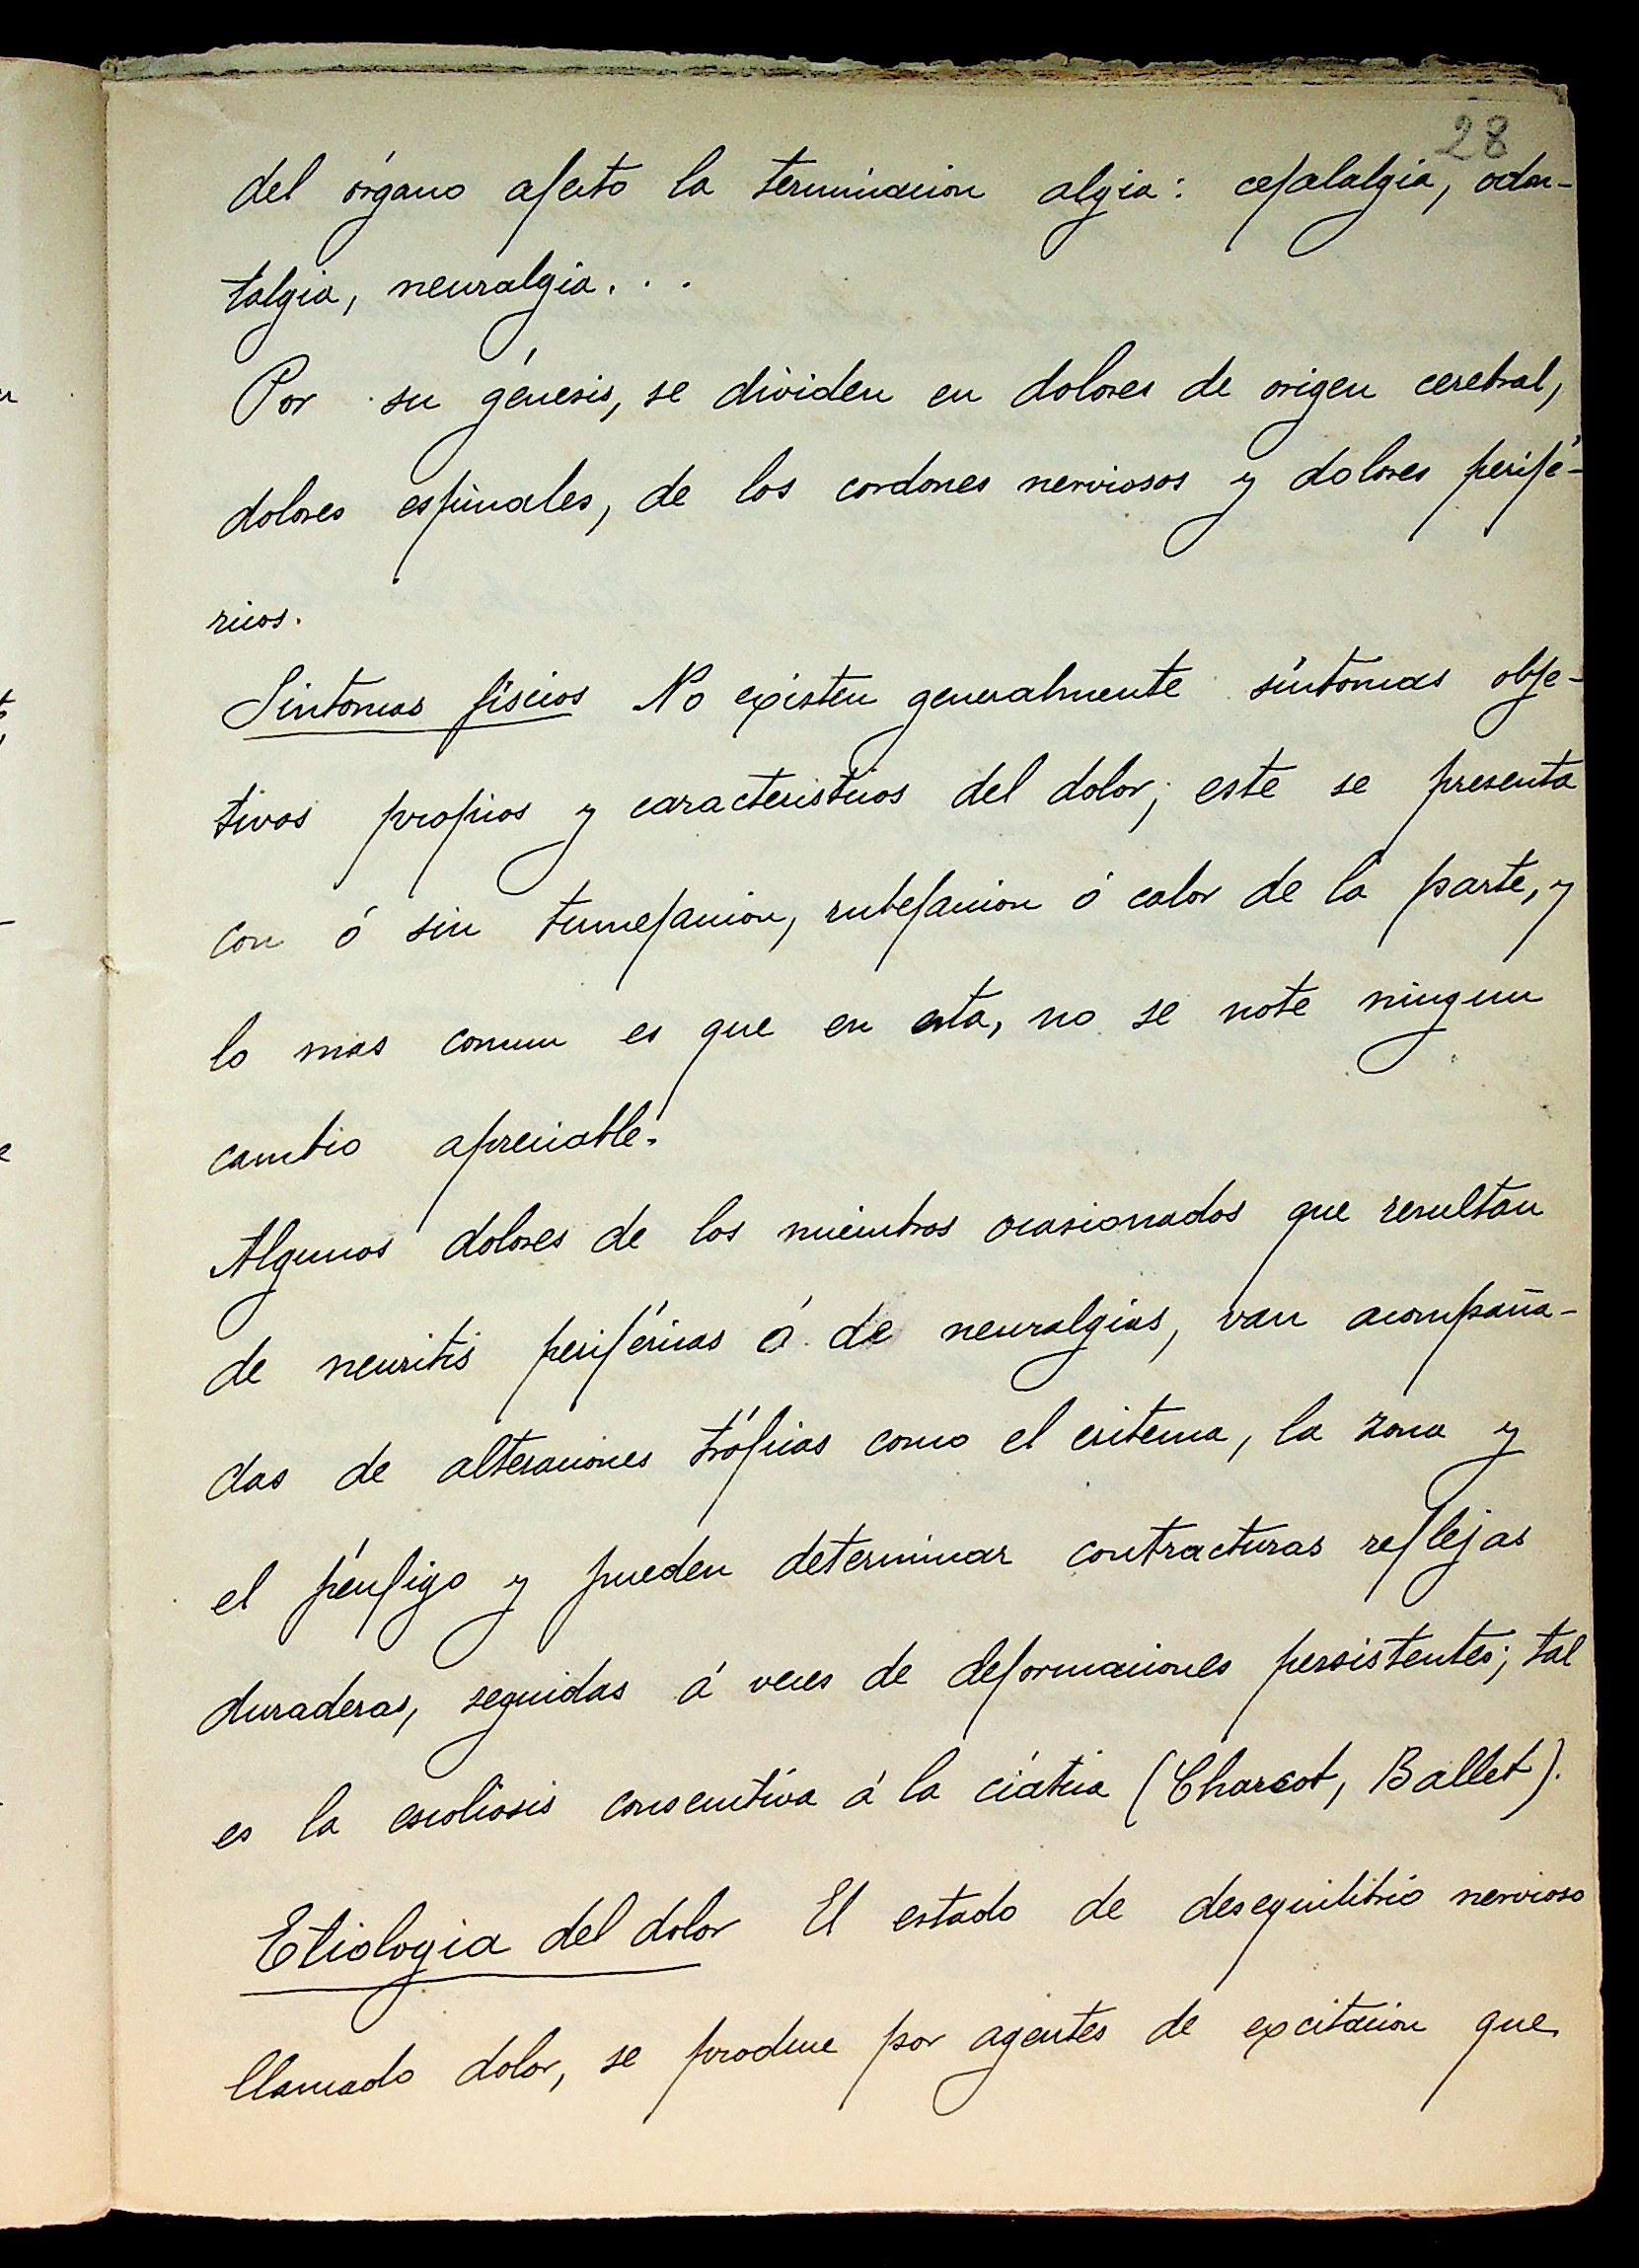 28
del órgano afecto la terminacion algia: cefalalgia, odon-
talgia, neuralgia...
Por su génesis, se dividen en dolores de origen cerebral,
dolores espinales, de los cordones nerviosos y dolores perifé-
ricos.
Sintomas físicos No existen generalmente síntomas obje-
tivos propios y caracteristicos del dolor; este se presenta
con ó sin tumefaccion, rubefaccion ó calor de la parte, y
lo mas comun es que en esta, no se note ningun
cambio apreciable.
Algunos dolores de los miembros ocasionados que resultan
de neuritis periféricas ó de neuralgias, van acompaña-
das de alteraciones tróficas como el eritema, la zona y
el pénfigo y pueden determinar contracturas reflejas
duraderas, seguidas á veces de deformaciones persistentes; tal
es la escoliosis consecutiva á la ciática (Charcot, Ballet).
Etiologia del dolor El estado de desequilibrio nervioso
llamado dolor, se produce por agentes de excitacion que